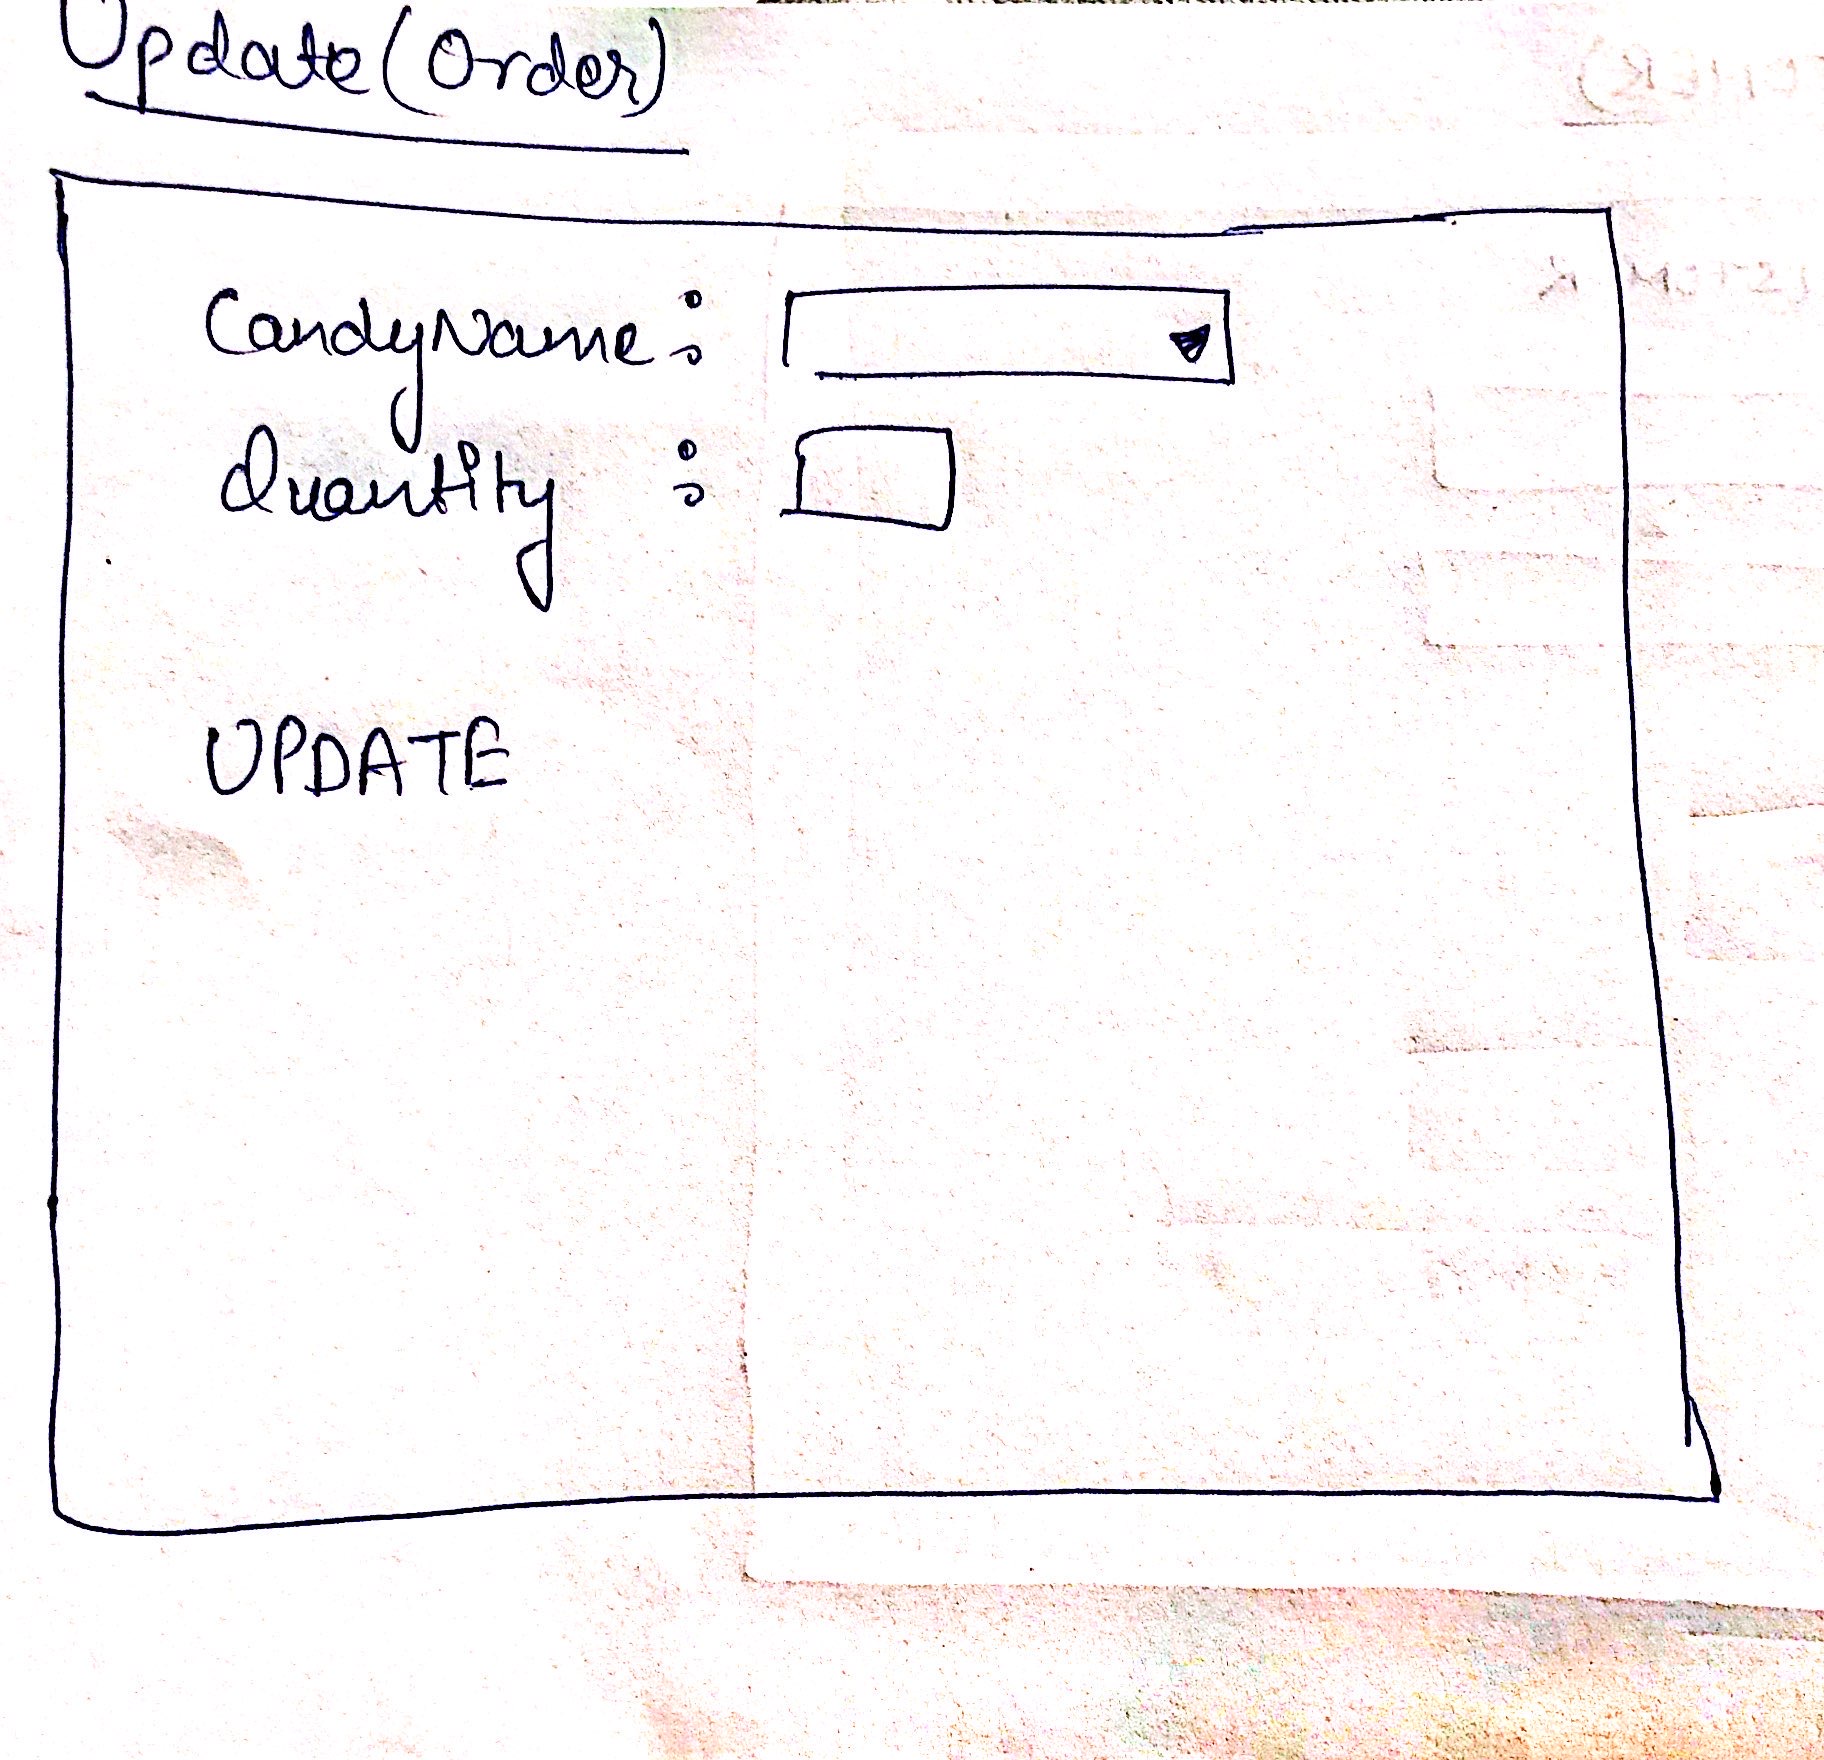 Update (Order)
CandyName :
Quantity :
UPDATE